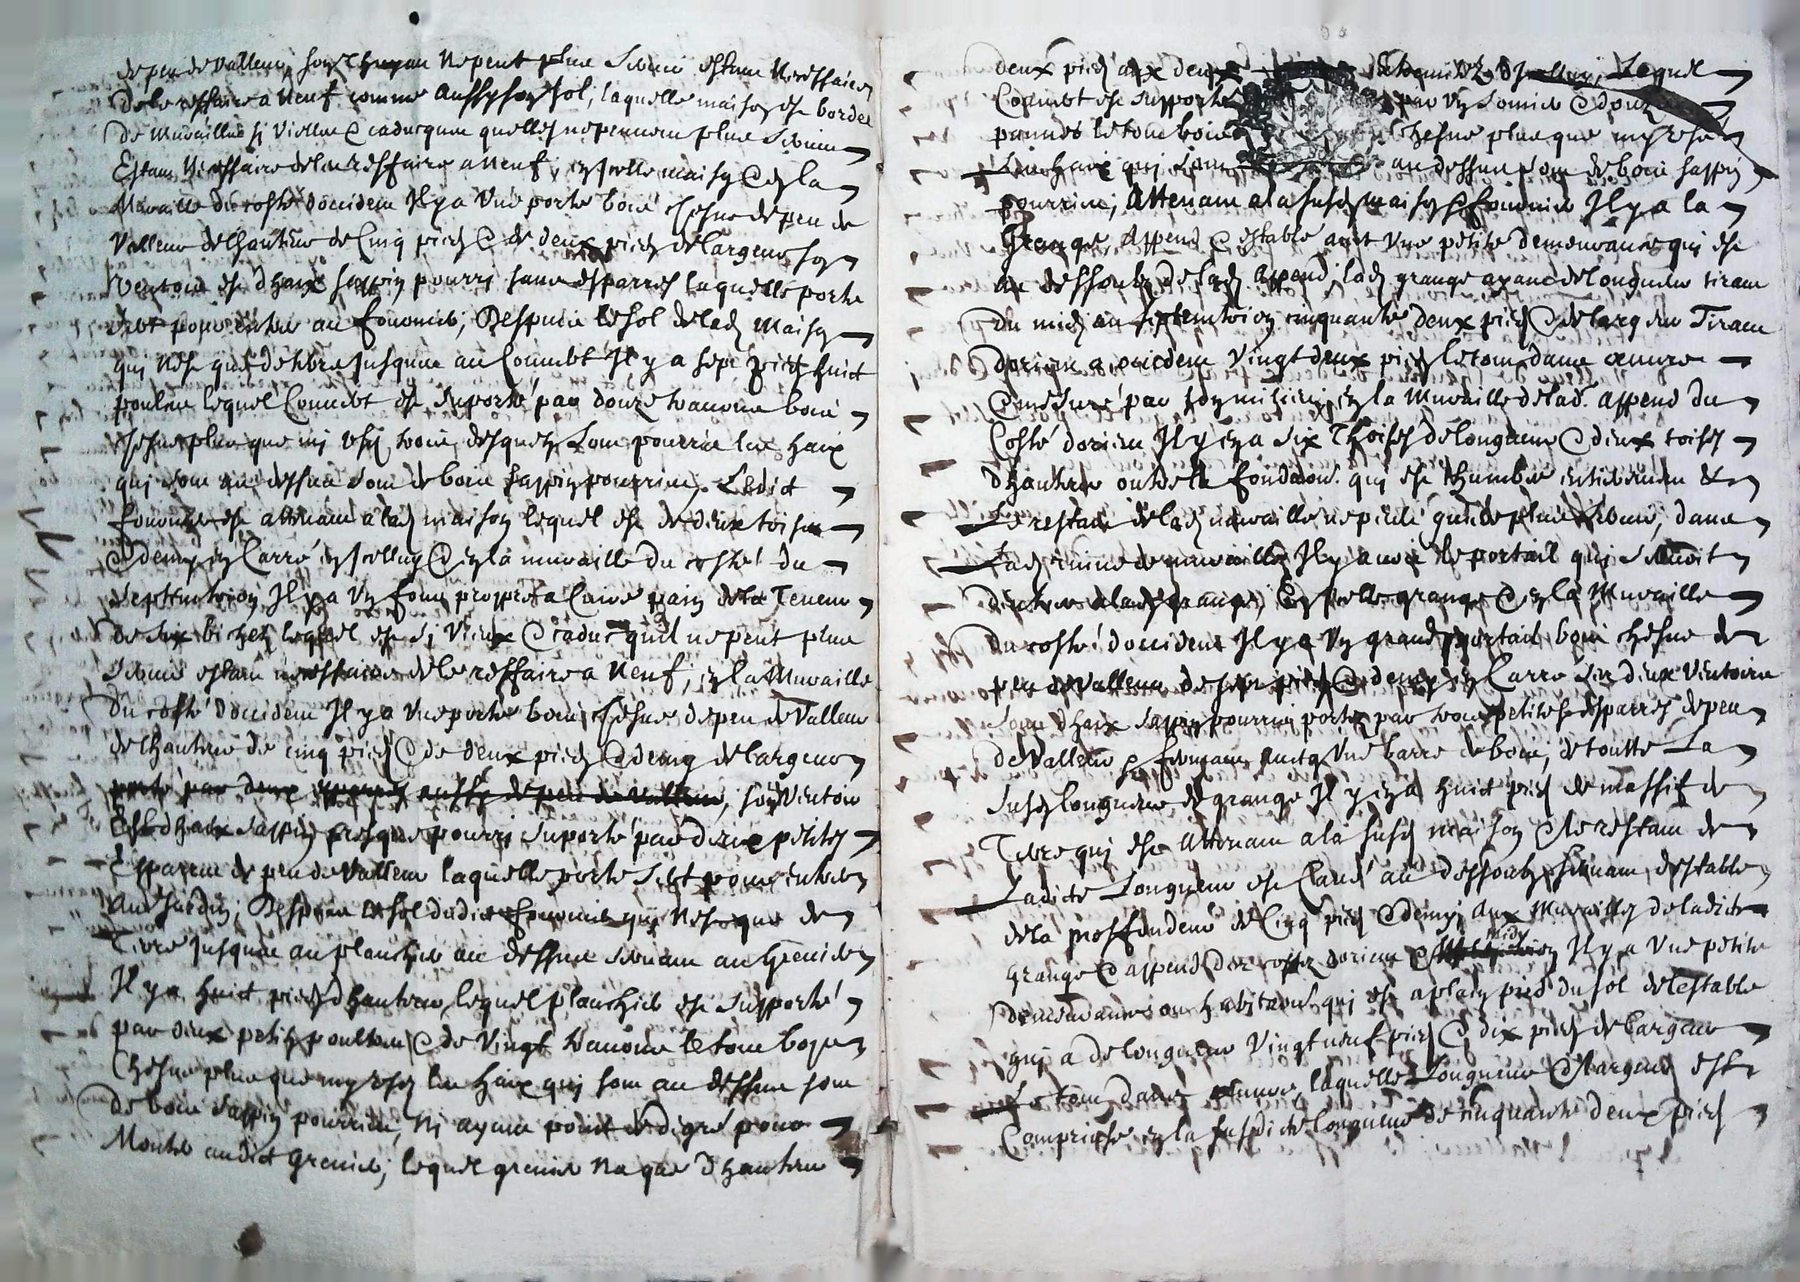 de peu de valleur, son thuyau ne peut plus servir estant necessaire
de le reffaire a neuf comme aussy son sol, laquelle maison est bordée
de murailles si vielles & caducques quelles ne peuvent plus servir
Estant necessaire de les reffaire a neuf, en jcelle maison & en la
Muraille du costé doccident Jl y a une porte bois chesne de peu de
valleur de lhauteur de Cinq pieds & de deux pieds de largeur son
ventoir est dhaix sappin pourri sans esparres laquelle porte
sert pour entrer au , Despuis le sol de lad maison
qui nest que de terre jusques au Couvert Jl y a sept pieds huict
poulces lequel Couvert est suporté par douze travons bois
chesne plus que my usés trois desquels sont pourris les haix
qui sont au dessus sont de bois sappin pourris, Ledict
 est attenant a lad maison lequel est de deux toises
& demy en Carré en jcelluy & en la muraille du costé du
septentrion Jl y a un four propre a Cuire pain de la Teneur
de six bichets lequel est si vieux & caduc quil ne peut plus
servir estant necessaire de le reffaire a neuf, en la Muraille
du costé doccident Jl y a une porte bois chesne de peu de valleur
de lhauteur de cinq pieds & de deux pieds & demy de largeur
porté par deux esparres aussy de peu de valleur, son ventoir
Est dhaix sappin presque pourri suporté par deux petites
Esparres de peu de valleur laquelle porte sert pour entrer
au jardin, Despuis le sol dudict qui nest que de
Terre jusques au planchier au dessus servant au Grenier
Jl y a huict pieds dhauteur, lequel planchier est supporté
par deux petits poultres & de vingt travons le tout bois
Chesne plus que my usés les haix qui sont au dessus sont
de bois sappin pourris, ni ayant point de degré pour
Monter audict grenier; lequel grenier na que dhauteur
deux pieds aux deux Lequel
Couvert est supporté par un somier & douze
pannes le tout bois chesne plus que my usés
Les haix qui sont au dessus sont de bois sappin
pourris; Attenant a la susd maison & Jl y a la
Grange Append & estable avec une petite demeurance qui est
au dessoubs de lad Append, lad grange ayant de longueur tirant
du midi au septentrion cinquante deux pieds & de largeur Tirant
dorient a occident vingt deux pieds le tout dans œuvre
& mesuré par son milieu, en la Muraille de lad. append du
Costé dorient Jl y en a six Thoises de longueur & deux toises
dhauteur oultre la fondaon. qui est thumbée entierement &
Le restant de lad muraille ne peult guere plus servir, dans
Lad ruine de muraille Jl y avoit le portail qui servoit
dentrée a lad grange, En jcelle grange & en la Muraille
du costé doccident Jl y a un grand portail bois chesne de
peu de valleur de sept pieds & demy en Carré ses deux ventoirs
sont dhaix sappin pourris portés par trois petites esparres de peu
de valleur & fermant avecq une barre de bois, de toutte La
susd longueur de grange Jl y en a huict pieds de massif de
Terre qui est attenant a la susd maison & le restant de
Ladicte Longueur est Cavé au dessoubs servant destable
de la proffondeur de Cinq pieds & demy, aux Murailles de ladicte
grange & append des costés dorient & midy Jl y a une petite
demeurance ou habitaon qui est a plain pied du sol de lestable
qui a de longueur vingt neuf pieds & dix pieds de largeur
Le tout dans œuvre, laquelle Longueur & largeur est
Comprinse en la susdicte longueur de cinquante deux pieds